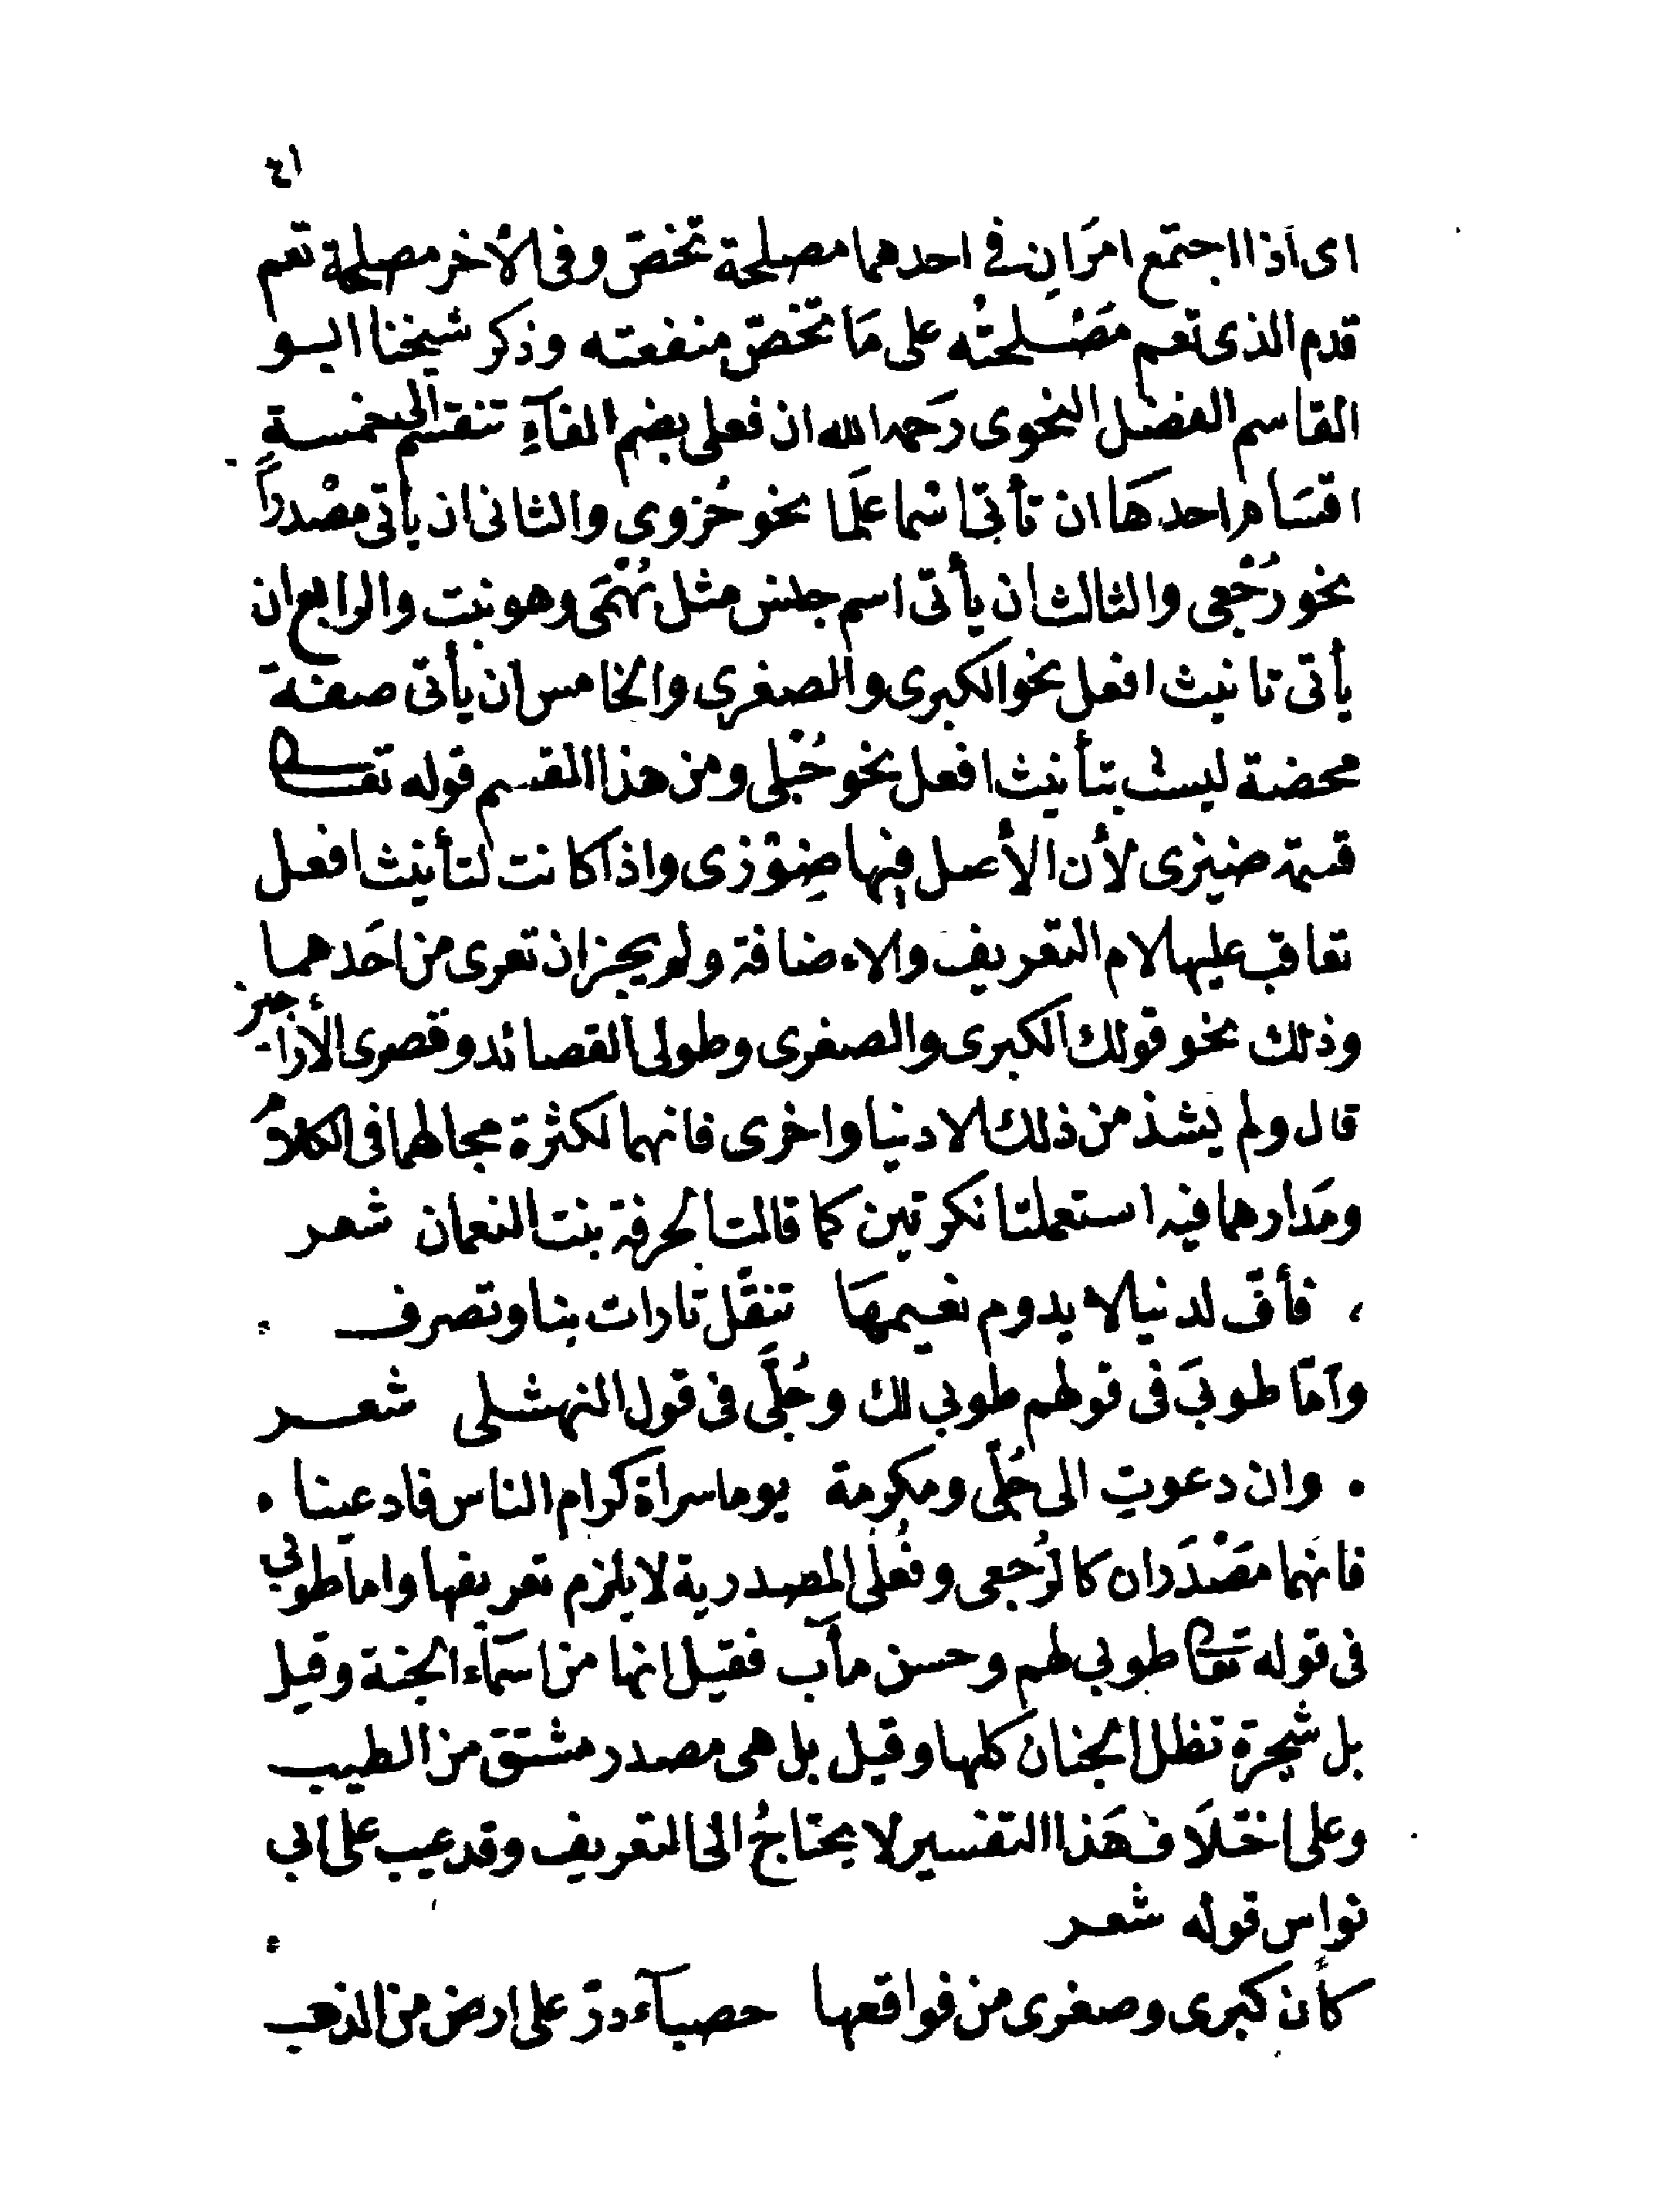 ٤١
اى اذا اجتمع امرَانِ فى احدهما مصلحة تخصّ وفى الأخر مصلحة تعم
قدم الذى تعم مَصْلحتُه على مَا تخصّ منفعته وذكر شيخنا ابو
القاسم الفضل النحوى رَحمه الله ان فعلى بضم الفآءِ تنقسم الى خمسة
اقسَام احدهَا ان تأتى اسْما علَما نحو حُزوى والثانى ان يأتى مصْدراً
نحو رُجْعى والثالث ان يأتى اسم جنس مثل بُهْمَى وهو نبت والرابع ان
يأتى تانيث افعل نحو الكبرى والصغرى والخامس ان يأتى صفة
محضة ليست بتأنيث افعل نحو حُبْلى ومن هذا القسم قوله تعالى
قسمة ضيزى لأن الأصل فيها ضِوْزى واذا كانت لتأنيث افعل
تعاقب عليها لام التعريف والاضافة ولم يجز ان تعرى من احَدهما
وذلك نحو قولك الكبرى والصغرى وطولى القصائد وقصرى الأراجيز
قال ولم يشذ من ذلك الا دنيا واخرى فانهما لكثرة مجالهما فى الكلام
ومَدارهما فيه استعملتا نكرتين كما قالت الحرقة بنت النعمان شعر
فأفّ لدنيا لا يدوم نعيمهَا تنقَّل تارات بنا وتصرف
وآمّا طوبَى فى قولهم طوبى لك وجُلَّى فى قول النهشلى شعر
وان دعوتِ الى جُلّى ومكرمة يوما سراة كرام الناس فادعينا
فانهما مَصْدَران كالرُجعى وفُعْلى المصدرية لا يلزم تعريفها واما طوبى
فى قوله تعالى طوبى لهم وحسن مآب فقيل انها من اسمَآء الجنة وقيل
بل شجرة تظلل الجنان كلها وقيل بل هى مصدر مشتق من الطيب
وعلى اختلَاف هَذا التفسير لا يحتاجُ الى التعريف وقد عيب على ابى
نواس قوله شعر
كأن كبرى وصغرى من فواقعها حصبآء درّ على ارض من الذهب